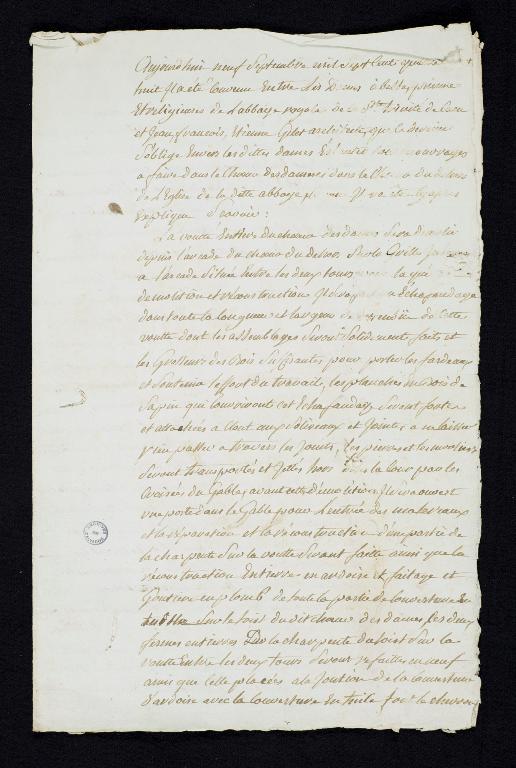 Aujourdhui neuf Septembre mil Sept Cents
huit Il a été Convenu Entre Les Dames abbesse prieure
Et religieuses de Labbaye royale de Ste Trinité de Caen
et Jean francois, Etienne Gilet architecte, que le dernier
Soblige Envers les dittes dames Et ouvrages
a faire dans le Choeur des dames dans le Choeur du dehors
de L'Eglise de la ditte abbaye Il va été
Expliqué Scavoir :
La voute Entiere du choeur des dames Sera démolie
depuis l'arcade du choeur du dehors
a larcade Située Entre les deux tours la qui
demolition et reconstruction Echafaudage
dans toute la longueur et largeur de cette
voutte dont les assemblages Seront Solidement faits et
les Grosseurs des Bois Suffisantes pour porter les fardeaux
et Soutenir leffort du travail, les planches en Bois de
Sapin qui couvriront cet Echafaudage Seront fortes
et attachées a Clout aux Soliveaux et Jointes a ne laisser
rien passer a travers les Joints, les pierres et les
Seront transportés et Jettés hors dans la Cour par les
Croisées du Gable, avant cette démolition Il Sera ouvert
une porte dans le Gable pour Lentrée des materiaux
et la reparation et la réconstruction d'une partie de
la charpente Sur la voutte Seront faitte ainsi que la
réconstruction Entierre en ardoise et faitage et
Goutiere en plomb de toute la partie de Couverture En
tuille Sur le toit du dit choeur des dames, les deux
fermes entierres de la charpente du toit Sur la
voutte Entre les deux tours Seront refaittes en neuf
ainsi que celle placées a la Jonction de la couverture
d'ardoise avec la Couverture En tuile